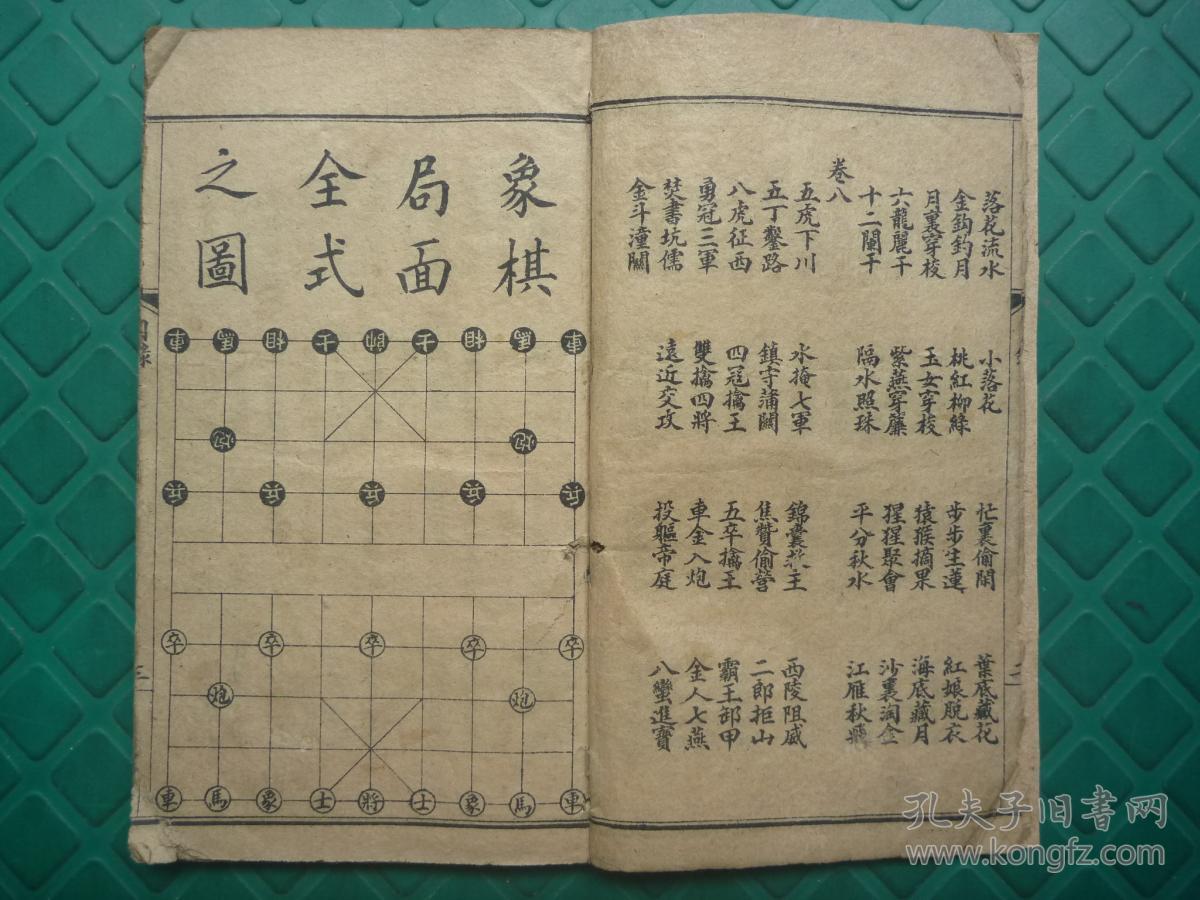 落花流水 小落花 忙裏偷閑 葉底藏花
金鈎釣月 桃紅柳綠 步步生蓮 紅娘脫衣
月裏穿梭 玉女穿梭 猿猴摘果 海底藏月
六龍麗干 紫燕穿簾 猩猩聚會 沙裏淘金
十二闌干 隔水照珠 平分秋水 江雁秋
卷八
五虎下川 水掩七軍 錦囊 主 西陵阻威
五丁鑿路 鎮守蒲關 焦贊偷營 二郎拒山
八虎征西 四冠擒王 五卒擒王 霸王卸甲
勇冠三軍 雙擒四將 車金入炮 金人七燕
焚書坑儒 遠近交攻 投軀帝庭 八蠻進寶
金斗潼關
象棋
局面
全式
之圖
車 馬 相 士 帥 士 相 馬 車
炮 炮
兵 兵 兵 兵 兵
卒 卒 卒 卒 卒
炮 炮
車 馬 象 士 將 士 象 馬 車
三
孔夫子旧书网
www.kongfz.com